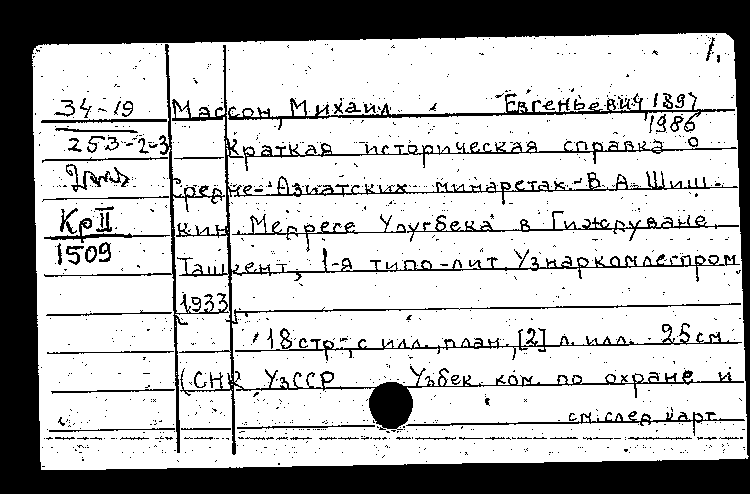 1.
34-19 Массон, Михаил Евгеньевич 1897
1986
253-2-3 Краткая историческая справка о
Средне-Азиатских минаретах.-В.А.Шиш-
Кр II кин. Медресе Улугбека в Гиждуване.
1509 Ташкент, 1-я типо-лит. Узнаркомлегпром
[1933].
18 стр., с илл., план., [2] л. илл. 25 см.
(СНК УзССР Узбек. ком. по охране и
см. след. карт.